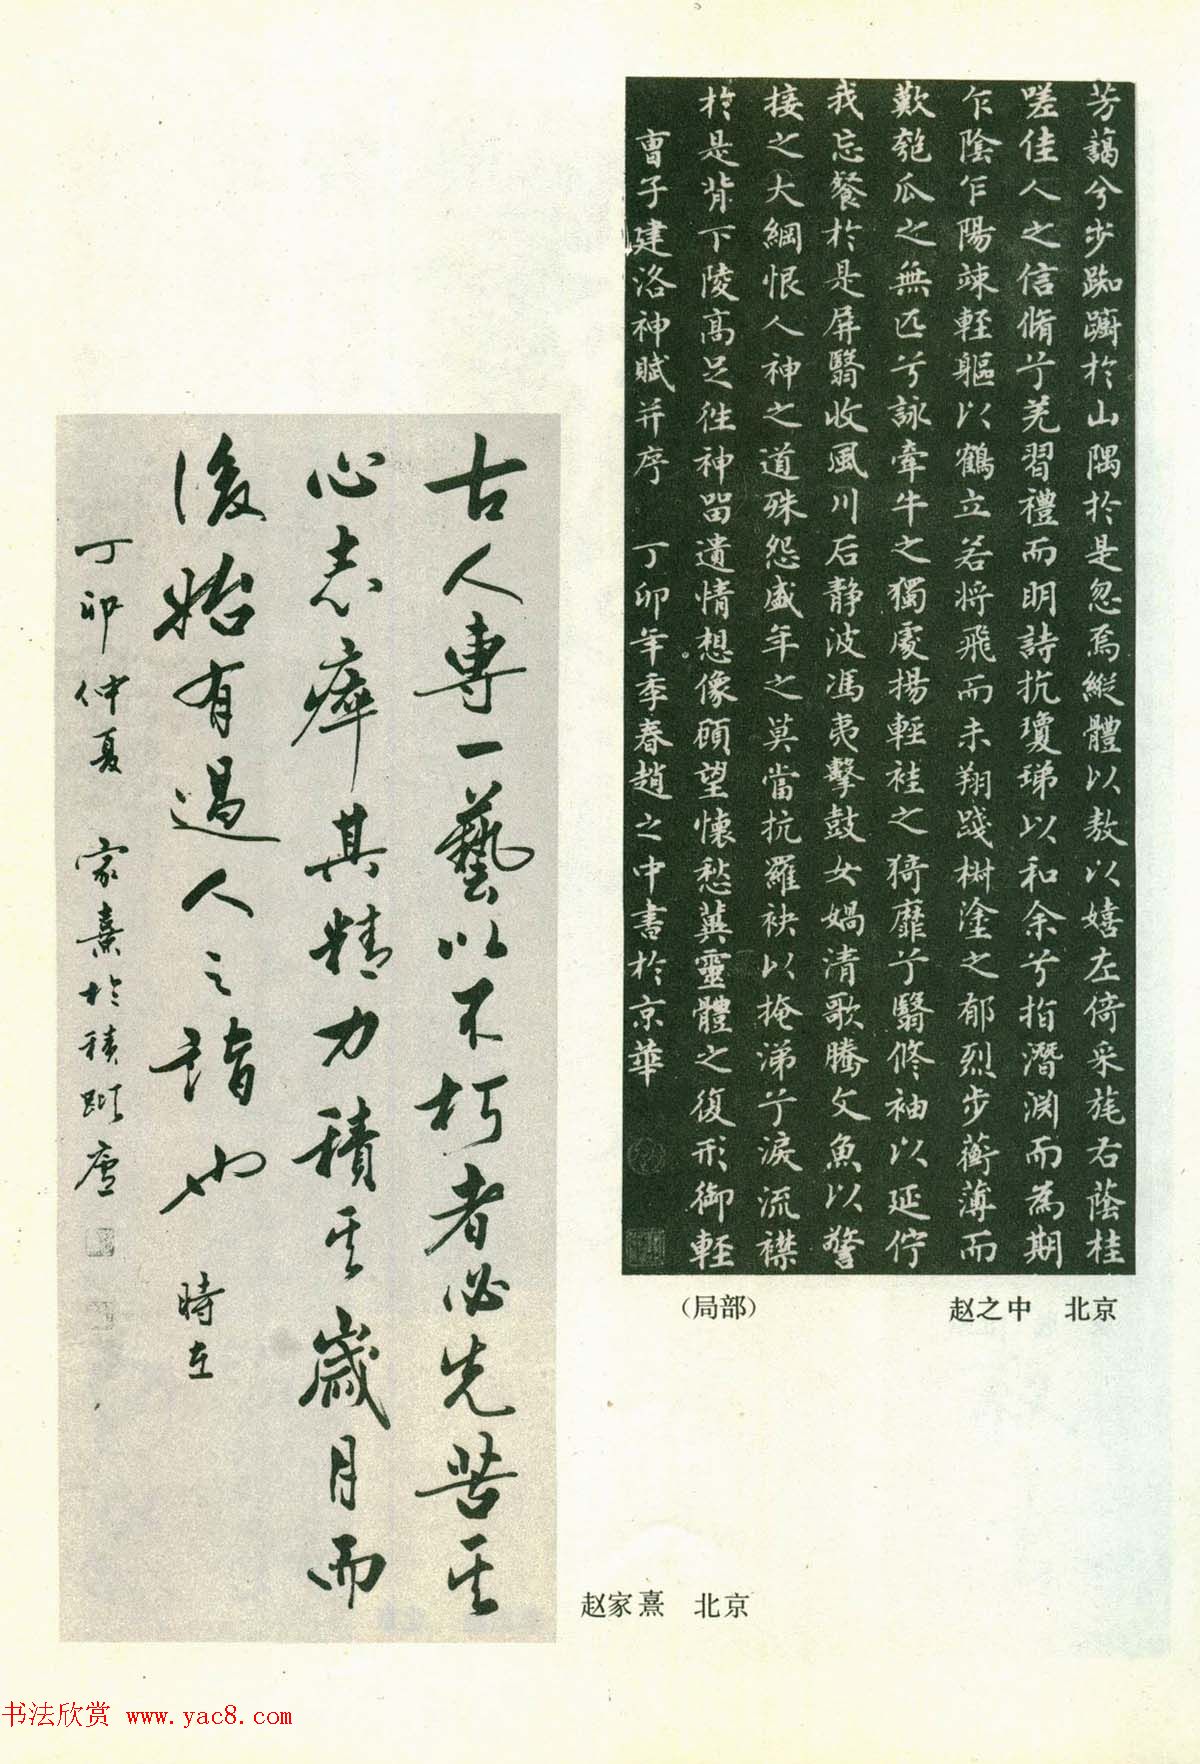 芳藹兮步踟躕於山隅於是忽焉縱體以敖以嬉左倚采旄右蔭桂
嗟佳人之信脩兮羌習禮而明詩抗瓊珶以和余兮指潛淵而為期
乍陰乍陽竦輕軀以鶴立若将飛而未翔踐椒塗之郁烈步蘅薄而
歎匏瓜之無匹兮詠牽牛之獨處揚輕袿之猗靡兮翳修袖以延佇
我忘餐於是屏翳收風川后静波馮夷擊鼓女媧清歌騰文魚以警
接之大綱恨人神之道殊怨盛年之莫當抗羅袂以掩涕兮淚流襟
於是背下陵高足往神留遺情想像顧望懷愁冀靈體之復形御輕
曹子建洛神賦并序 丁卯年季春趙之中書於京華
（局部）
赵之中 北京
古人專一藝以不朽者必先苦其
心志瘁其精力積其歲月而
後始有過人之詣也 時在
丁卯仲夏 家熹於積跬廬
赵家熹 北京
书法欣赏 www.yac8.com